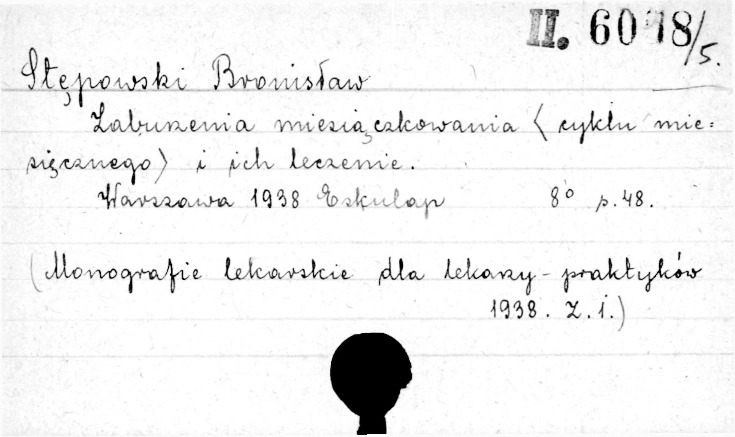 II. 6018/5.
Stępowski Bronisław
Zaburzenia miesiączkowania < cyklu mie=
sięcznego > i ich leczenie.
Warszawa 1938 Eskulap 8° p. 48.
(Monografie lekarskie dla lekarzy - praktyków
1938. Z. 1.)